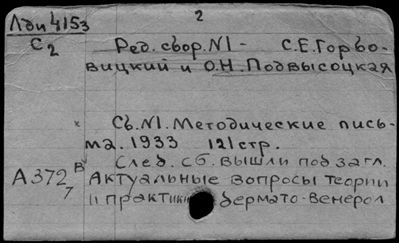 2
Лди 4153
С2
Ред. сбор. N1 - С.Е. Горъо-
вицкий и О.Н. Подвысоцкая
х Сб. N1. Методические пись-
ма. 1933 121 стр.
След. сб. вышли под загл.
А372 В Актуальные вопросы теории
7 и практики дермато-венерол